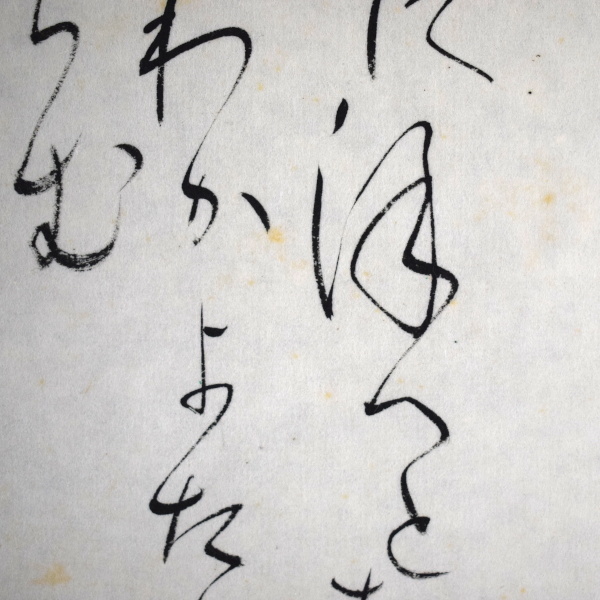 にほへと
わかよた
らむ